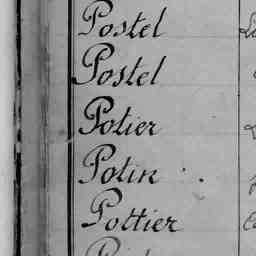 Postel
Postel
Potier
Potin
Pottier